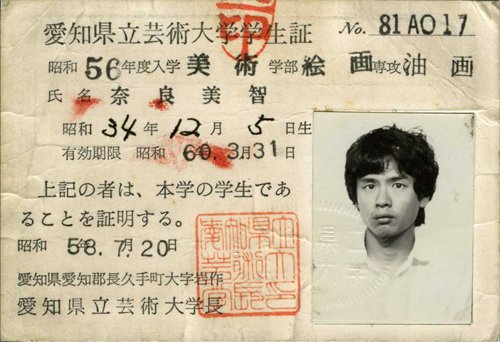 愛知県立芸術大学学生証 No. 81A017
昭和56年度入学 美術学部 絵画専攻 油画
氏名 奈良美智
昭和34年12月5日生
有効期限 昭和60.3月31日
上記の者は、本学の学生であ
ることを証明する。
昭和58.7.20日
愛知県愛知郡長久手町大字岩作
愛知県立芸術大学長